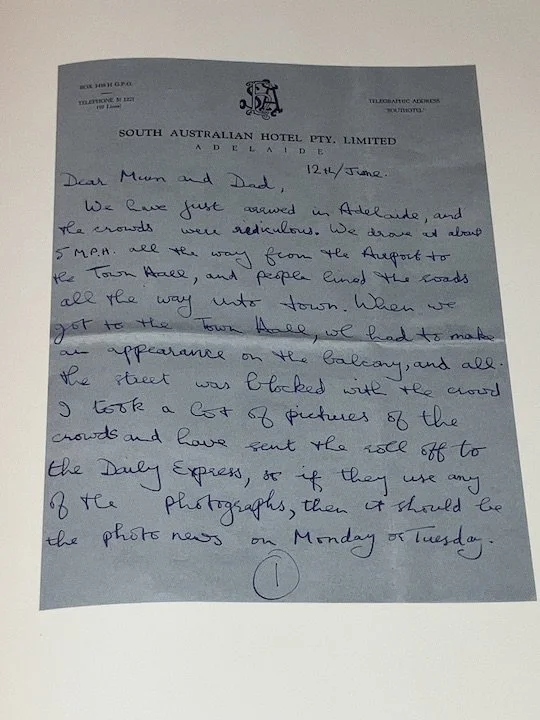 BOX 1498 H G.P.O.
TELEPHONE 51 1221
(10 Lines)
SHA
TELEGRAPHIC ADDRESS
"SOUHOTEL"
SOUTH AUSTRALIAN HOTEL PTY. LIMITED
ADELAIDE
12th/June.
Dear Mum and Dad,
We have just arrived in Adelaide, and
the crowds were ridiculous. We drove at about
5 M.P.H. all the way from the Airport to
the Town Hall, and people lined the roads
all the way into town. When we
got to the Town Hall, we had to make
an appearance on the balcony, and all
the street was blocked with the crowd
I took a lot of pictures of the
crowds and have sent the roll off to
the Daily Express, so if they use any
of the photographs, then it should be
the photo news on Monday or Tuesday.
1